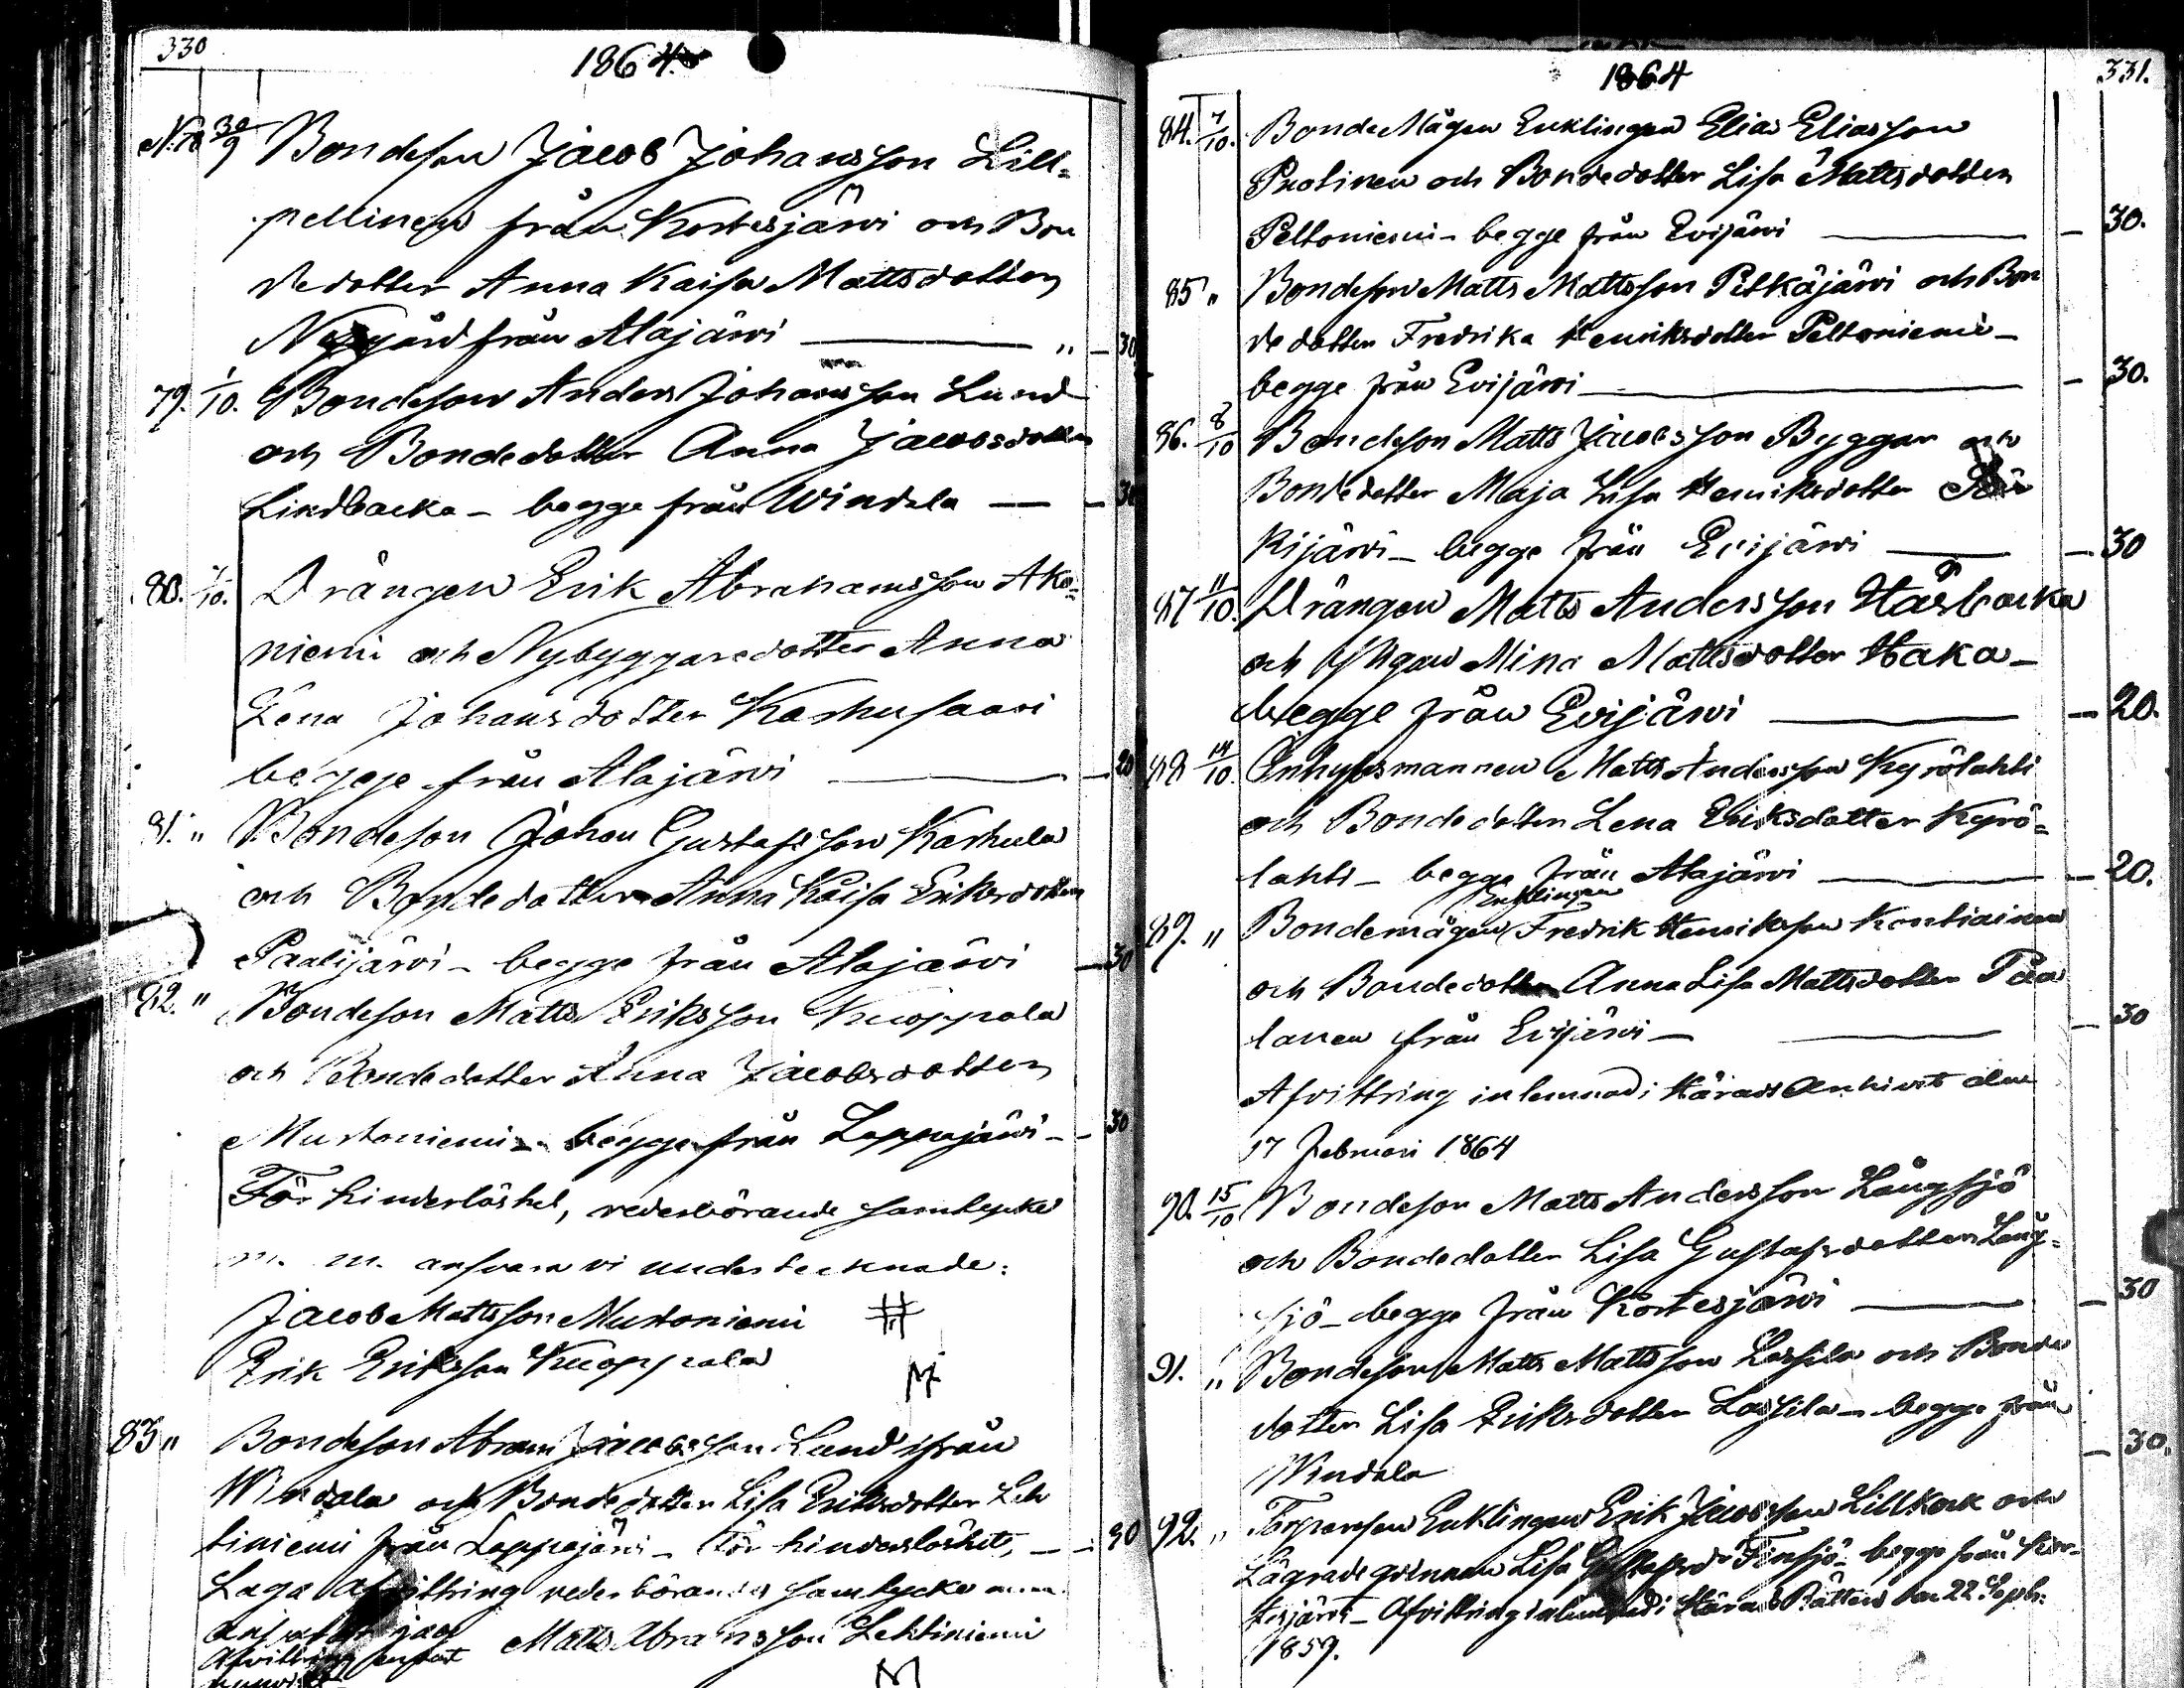 330
1864.
N:78 30/9 Bondeson Jacob Johansson Lill-
pellinen från Kortesjärvi och Bon
dedotter Anna Kaisa Mattsdotter
Nygård från Alajärvi — " — 30
79. 1/10. Bondeson Anders Johansson Lund
och Bondedotter Anna Jacobsdotter
Lindbacka – begge från Windala — — 30
80. 1/10. Drängen Erik Abrahamsson Aka-
niemi och Nybyggaredotter Anna
Lena Johansdotter Karhusaari
begge från Alajärvi — — 20
81. " Bondeson Johan Gustafsson Karhula
och Bondedotter Anna Kaisa Eriksdotter
Paalijärvi – begge från Alajärvi — 30
82. " Bondeson Matts Eriksson Kuoppala
och Bondedotter Anna Jacobsdotter
Mustoniemi – begge från Lappajärvi – – 30
För hinderlöshet, vederbörande samtycke
m. m. ansvara vi undertecknade:
Jacob Mattsson Mustoniemi
Erik Eriksson Kuoppala
83 " Bondeson Abram Jacobsson Lund ifrån
Windala och Bondedotter Lisa Eriksdotter Leh
tiniemi från Lappajärvi – För hinderslöshet, — 30
Laga afvittring vederbörandes samtycke m.m.
ansvarar jag Matts Abramsson Lehtiniemi
Afvittring
1864
331.
84. 7/10. BondeMågen Enklingen Elias Eliasson
Puolinen och Bondedotter Lisa Mattsdotter
Peltoniemi – begge från Evijärvi — — 30.
85 " Bondeson Matts Mattsson Pitkäjärvi och Bon
dedotter Fredrika Henriksdotter Peltoniemi –
begge från Evijärvi — — 30.
86. 8/10 Bondeson Matts Jacobsson Byggar och
Bondedotter Maja Lisa Henriksdotter
kijärvi – begge från Evijärvi — — 30
87 11/10. Drängen Matts Andersson Hasbacka
och Pigan Mina Mattsdotter Haka –
begge från Evijärvi — — 20.
88 14/10. Inhysesmannen Matts Andersson Kyrölahti
och Bondedotter Lena Eriksdotter Kyrö-
lahti – begge från Alajärvi — — 20.
Enklingen
89. " Bondemågen Fredrik Henriksson Kontiainen
och Bondedotter Anna Lisa Mattsdotter Paa
lanen från Evijärvi – — — 30
Afvittring inlemnad i Härads Archivet den
17 Februari 1864
90. 15/10 Bondeson Matts Andersson Långsjö
och Bondedotter Lisa Gustafsdotter Lång-
sjö – begge från Kortesjärvi — — 30
91. " Bondeson Matts Mattsson Lassila och Bonde
dotter Lisa Eriksdotter Lassila – begge från
Windala — 30.
92. " Torparesen Enklingen Erik Jacobsson Lillkock och
Lägradeqvinnan Lisa Gustafsdr Finsjö – begge från Kor-
tesjärvi – Afvittring inlemnad i Härads Rätten den 22 Septbr
1859.